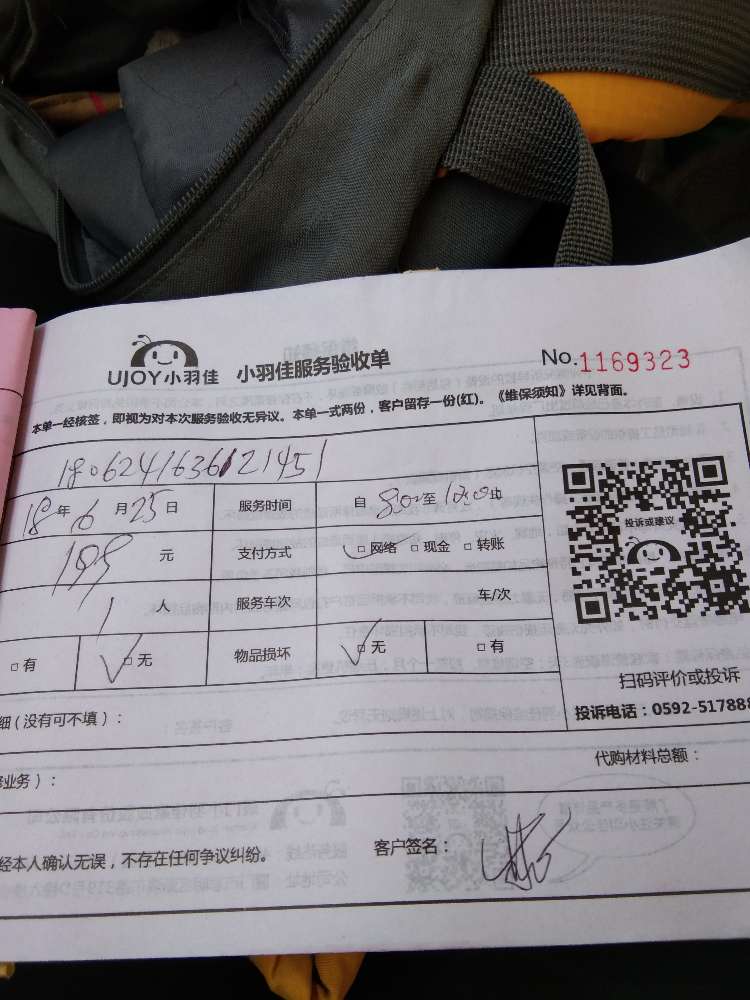 UJOY小羽佳 小羽佳服务验收单 No.1169323
本单一经核签，即视为对本次服务验收无异议。本单一式两份，客户留存一份(红)。《维保须知》详见背面。
1806241636121451
18年6月25日 服务时间 自800至1200止
199元 支付方式 □网络 □现金 □转账
1人 服务车次 车/次
□有 □无 物品损坏 □无 □有
投诉或建议
扫码评价或投诉
投诉电话：0592-517888
细(没有可不填)：
业务)： 代购材料总额：
经本人确认无误，不存在任何争议纠纷。 客户签名：